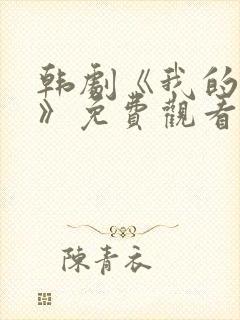 韩劇《我的
》免費觀看
陳青衣